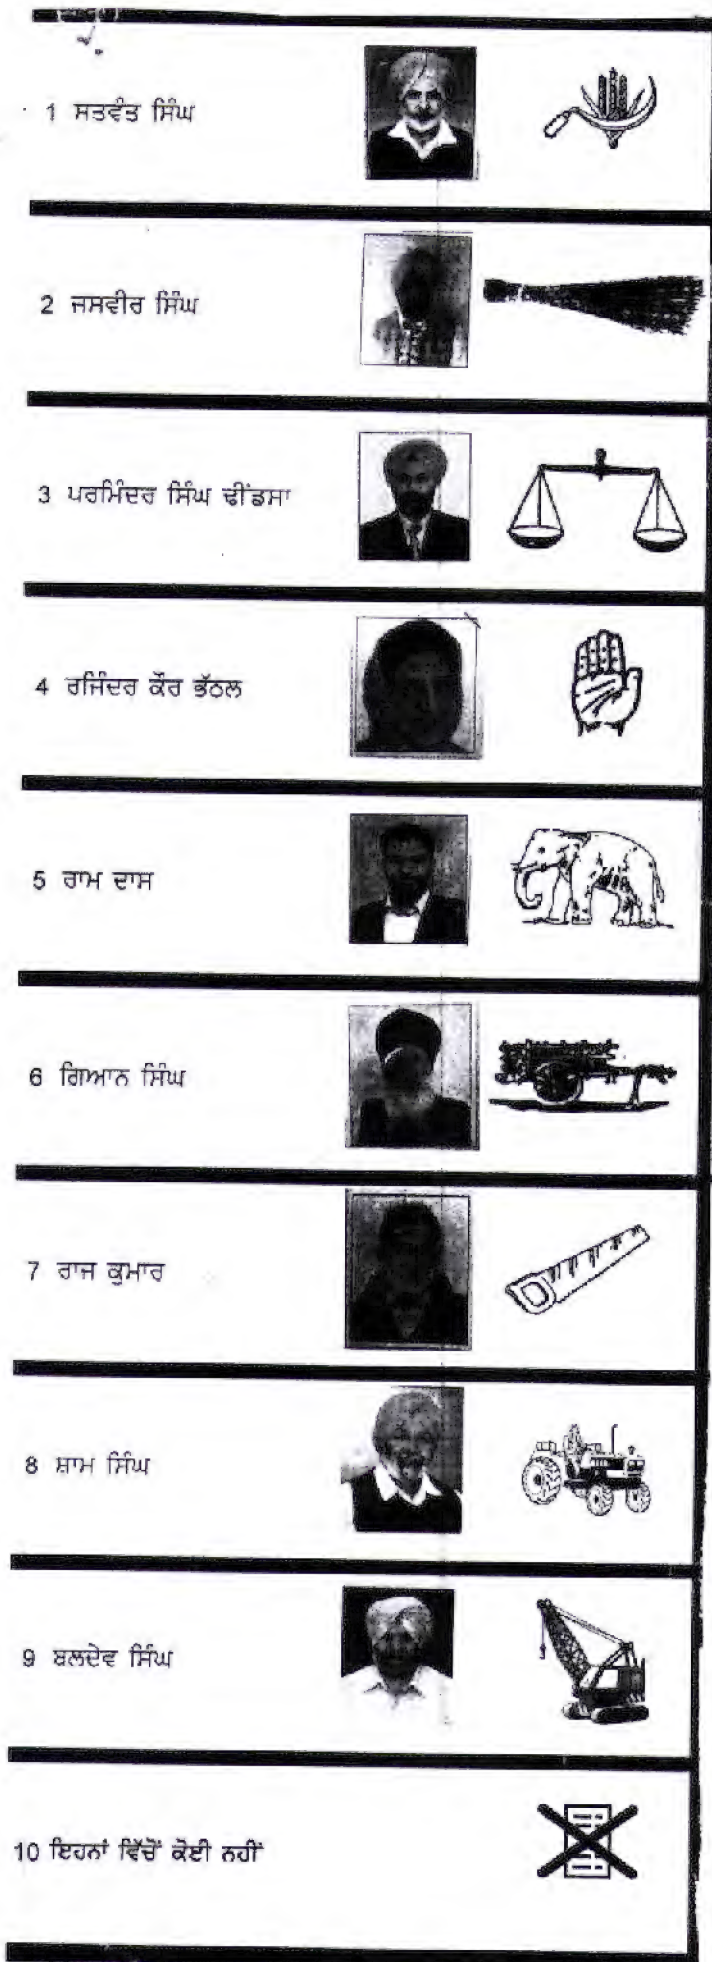 1 ਸਤਵੰਤ ਸਿੰਘ
2 ਜਸਵੀਰ ਸਿੰਘ
3 ਪਰਮਿੰਦਰ ਸਿੰਘ ਢੀਂਡਸਾ
4 ਰਜਿੰਦਰ ਕੌਰ ਭੱਠਲ
5 ਰਾਮ ਦਾਸ
6 ਗਿਆਨ ਸਿੰਘ
7 ਰਾਜ ਕੁਮਾਰ
8 ਸ਼ਾਮ ਸਿੰਘ
9 ਬਲਦੇਵ ਸਿੰਘ
10 ਇਹਨਾਂ ਵਿੱਚੋਂ ਕੋਈ ਨਹੀਂ